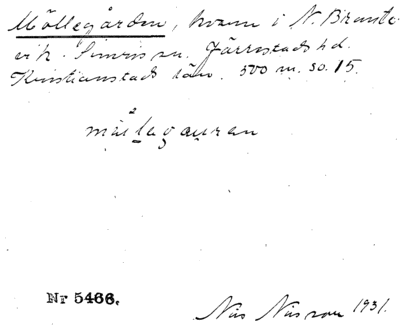 Möllegården, kvarn i N. Brante-
vik. Simris sn. Järrestads hd.
Kristianstads län. 500 m. so. 15.
mölagauran
Nr 5466.
Nils Nilsson 1931.